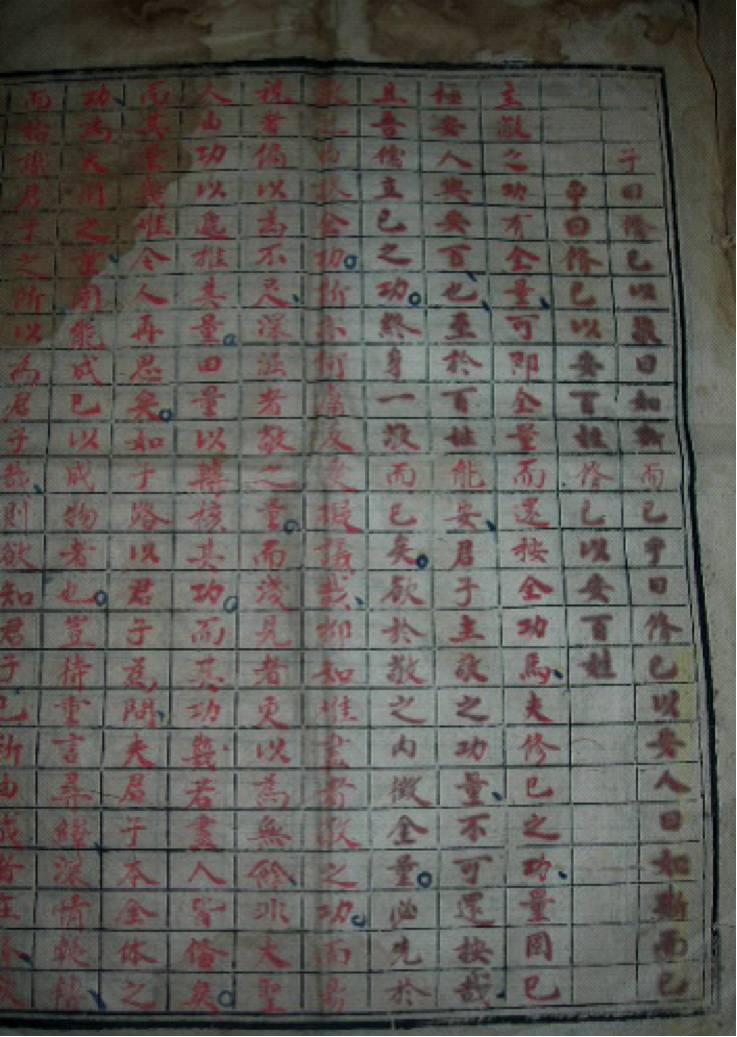 子曰修己以敬曰如斯而已乎曰修己以安人曰如斯而已
乎曰修己以安百姓修己以安百姓
主敬之功有全量、可即全量而還按全功焉、夫修己之功、量固已
極安人與安百也、至於百姓能安、君子主敬之功量、不可還按哉、
且吾儒立己之功。終身一敬而已矣。欲於敬之內微全量。必先於
敬之內全功。所亦何反更擬議哉、抑知者敬之功。而易
視者偏以為不足、深涵者敬之量。而淺見者更以為無餘、非大聖
人由功以遞推其量。由量以轉核其功。而其功幾若盡人皆脩矣。
而其量幾難令人再思矣。如子路以君子為問、夫君子本全体之
功、為大用之量、用能成己以成物者也。豈待重言尋繹深情輾轉、
而始識君子之所以為君子哉、則欲知君子己所由成